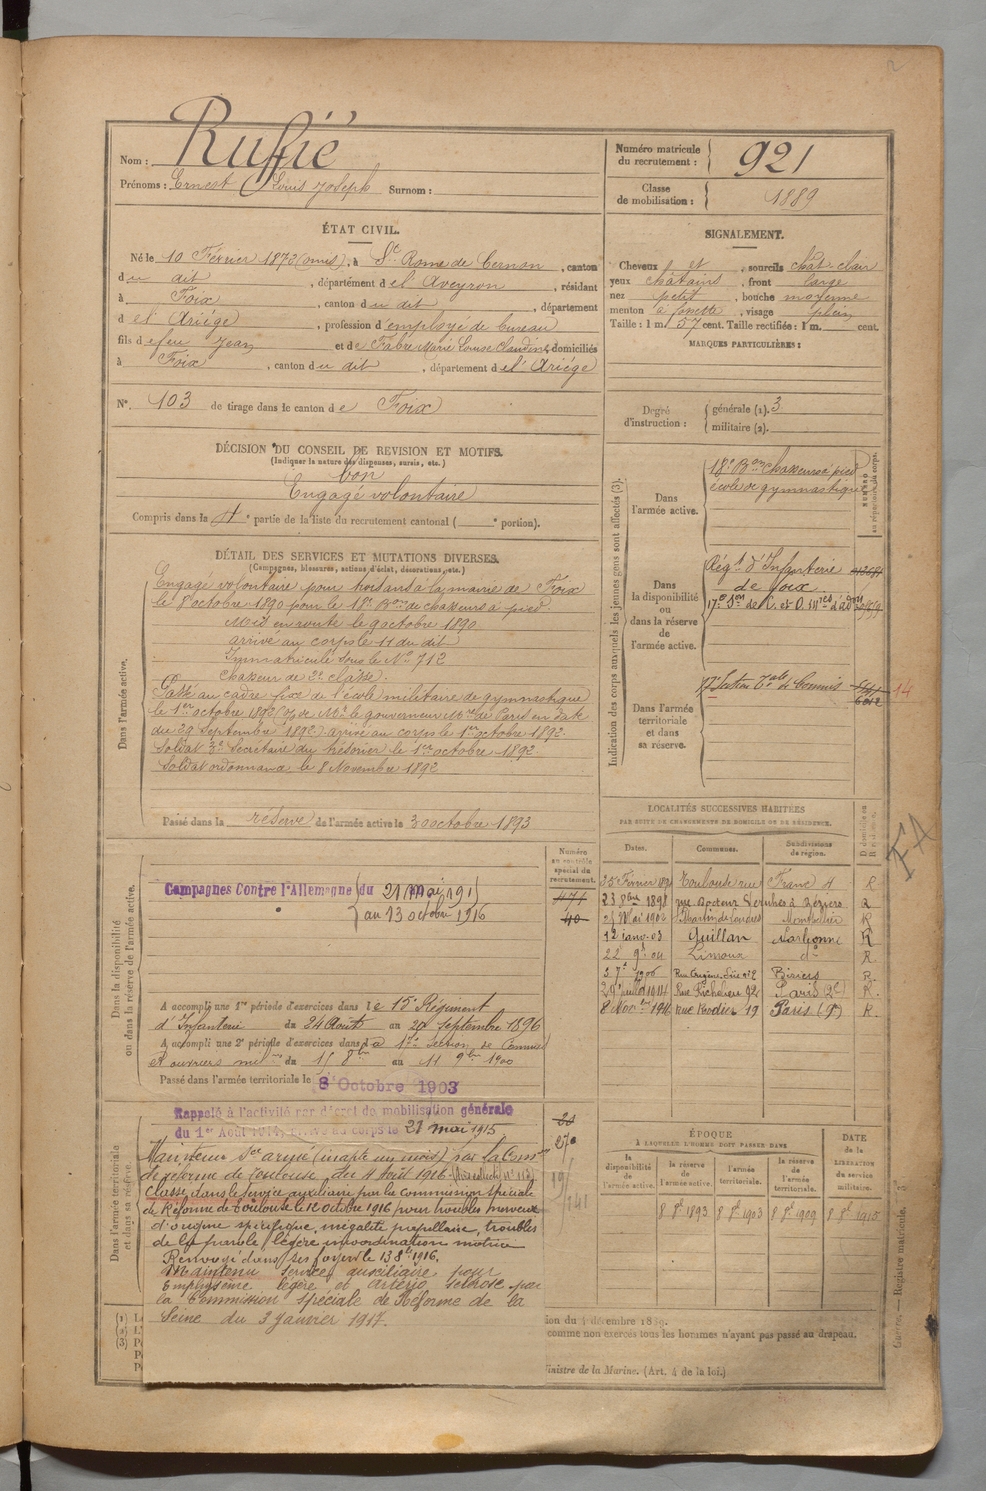 Nom : Ruffié
Prénoms : Ernest Louis Joseph Surnom :
Numéro matricule du recrutement : 921
Classe de mobilisation : 1889
ÉTAT CIVIL.
Né le 10 Février 1872 (omis), à St Rome de Cernon, canton
du dit, département de l'Aveyron, résidant
à Foix, canton du dit, département
de l'Ariége, profession d'employé de bureau
fils de feu Jean et de Fabre Marie Louise Claudine, domiciliés
à Foix, canton du dit, département de l'Ariége
N°. 103 de tirage dans le canton de Foix
SIGNALEMENT.
Cheveux et, sourcils chât-clair
yeux châtains, front large
nez petit, bouche moyenne
menton à fossette, visage plein
Taille : 1 m. 57 cent. Taille rectifiée : 1 m. cent.
MARQUES PARTICULIÈRES :
Degré d'instruction : générale (1). 3
militaire (2).
DÉCISION DU CONSEIL DE REVISION ET MOTIFS.
(Indiquer la nature des dispenses, sursis, etc.)
bon
Engagé volontaire
Compris dans la 4e partie de la liste du recrutement cantonal ( e portion).
DÉTAIL DES SERVICES ET MUTATIONS DIVERSES.
(Campagnes, blessures, actions d'éclat, décorations, etc.)
Dans l'armée active.
Engagé volontaire pour trois ans à la mairie de Foix
le 8 octobre 1890 pour le 18e Bon de chasseurs à pied.
Mis en route le 9 octobre 1890
arrivé au corps le 11 du dit
Immatriculé sous le No 712
chasseur de 2e classe.
Passé au cadre fixe de l'école militaire de gymnastique
le 1er octobre 1892 de Mr le gouverneur Mre de Paris en date
du 29 septembre 1892) arrivé au corps le 1er octobre 1892.
Soldat 2e Secrétaire du trésorier le 1er octobre 1892
Soldat ordonnance le 8 Novembre 1892
Passé dans la réserve de l'armée active le 30 octobre 1893
Indication des corps auxquels les jeunes gens sont affectés (3).
NUMÉRO au répertoire du corps.
Dans l'armée active.
18e Bon chasseurs à pied
école de gymnastique
Dans la disponibilité ou dans la réserve de l'armée active.
Régt d'Infanterie
de Foix
17e Son de C. et O. Mres d'adon
Dans l'armée territoriale et dans sa réserve.
17e Section Tale de Commis 14
Dans la disponibilité ou dans la réserve de l'armée active.
Numéro au contrôle spécial du recrutement.
471
40
Campagnes Contre l'Allemagne du 21 mai 1915
au 13 octobre 1916
A accompli une 1re période d'exercices dans le 15e Régiment
d'Infanterie du 24 Août au 20 septembre 1896
A accompli une 2e période d'exercices dans la 17e Section de Commis
et ouvriers mil res du 15 8bre au 11 9bre 1900
Passé dans l'armée territoriale le 8 Octobre 1903
LOCALITÉS SUCCESSIVES HABITÉES
PAR SUITE DE CHANGEMENTS DE DOMICILE OU DE RÉSIDENCE.
Dates. Communes. Subdivisions de région. D domicile ou R résidence.
25 Février 1894 Toulouse rue Franc 4 R
23 8bre 1898 rue Docteur à Béziers R
25 Mai 1902 St Martin de Londres Montpellier R
12 janv. 03 Quillan Narbonne R
22 9b 04 Limoux do R
3 7b 1906 Rue Eugène Süe no 2 Béziers R
29 juillet 1914 Rue Richelieu 92 Paris (2e) R.
8 Novbre 1916 rue Rodier 19 Paris (9e) R.
FA
Dans l'armée territoriale et dans sa réserve.
Rappelé à l'activité par décret de mobilisation générale
du 1er Août 1914, arrivé au corps le 21 mai 1915
Maintenu Sce armé (inapte un mois) par la Comson
de réforme de Toulouse du 4 Août 1916
Classé dans le service auxiliaire par la Commission spéciale
de Réforme de Toulouse le 12 octobre 1916 pour troubles nerveux
d'origine spécifique, inégalité pupillaire, troubles
de la parole, légère incoordination motrice
Renvoyé dans ses foyers le 13 8bre 1916.
Maintenu service auxiliaire pour
Emphysème légère et artério sclérose par
la Commission spéciale de Réforme de la
Seine du 3 Janvier 1917.
ÉPOQUE
À LAQUELLE L'HOMME DOIT PASSER DANS
la disponibilité de l'armée active. la réserve de l'armée active. l'armée territoriale. la réserve de l'armée territoriale.
DATE de la LIBÉRATION du service militaire.
8 8b 1893 8 8b 1903 8 8b 1909 8 8b 1915
ion du 4 décembre 1889.
comme non exercés tous les hommes n'ayant pas passé au drapeau.
Ministre de la Marine. (Art. 4 de la loi.)
Registre matricule.